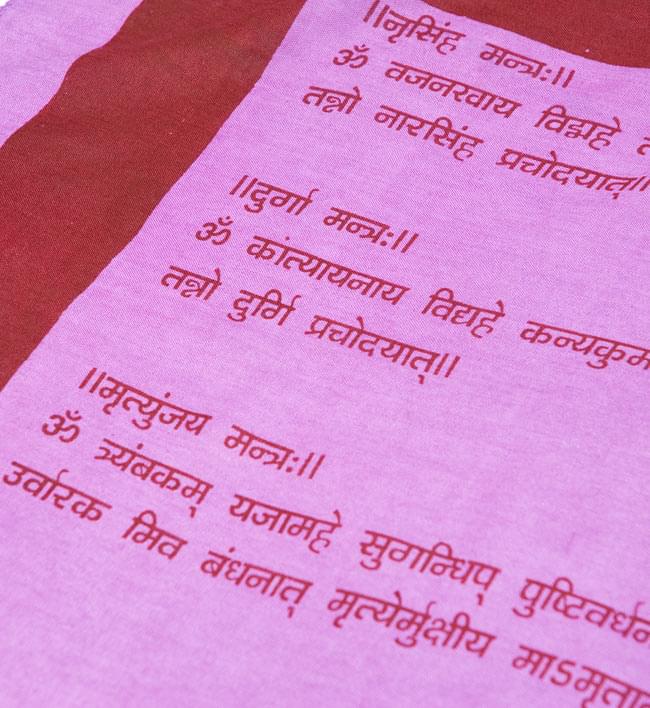 ||नृसिंह मन्त्रः||
ॐ वजनरवाय विद्महे
तन्नो नारसिंह प्रचोदयात्||
||दुर्गा मन्त्रः||
ॐ कांत्यायनाय विद्यहे कन्यकुम
तन्नो दुर्गि प्रचोदयात्||
||मृत्युंजय मन्त्रः||
ॐ त्र्यंबकम् यजामहे सुगन्धिप् पुष्टिवर्धन
उर्वारक मिव बंधनात् मृत्येर्मुक्षीय माऽमृता